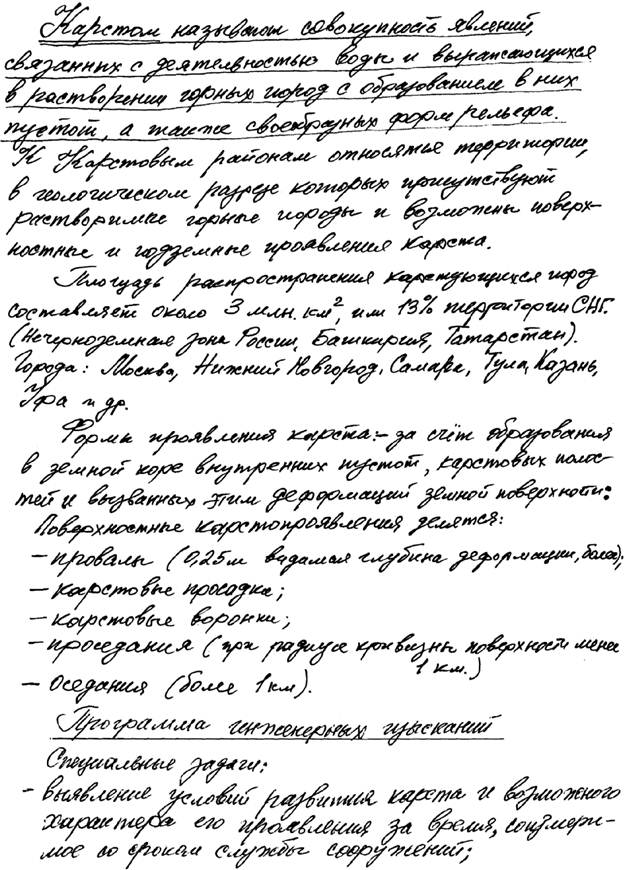 Карстом называют совокупность явлений,
связанных с деятельностью воды и выражающихся
в растворении горных пород с образованием в них
пустот, а также своеобразных форм рельефа.
К Карстовым районам относятся территории,
в геологическом разрезе которых присутствуют
растворимые горные породы и возможны поверх-
ностные и подземные проявления карста.
Площадь распространения карстующихся пород
составляет около 3 млн. км², или 13% территории СНГ.
(Нечерноземная зона России, Башкирия, Татарстан).
Города: Москва, Нижний Новгород, Самара, Тула, Казань,
Уфа и др.
Формы проявления карста:- за счёт образования
в земной коре внутренних пустот, карстовых полос-
тей и вызванных этим деформаций земной поверхности:
Поверхностные карстопроявления делятся:
- провалы (0,25м видимая глубина деформации, более);
- карстовые просадка;
- карстовые воронки;
- проседания (при радиусе кривизны поверхности менее
1 км.)
- Оседания (более 1км).
Программа инженерных изысканий
Специальные задачи:
- выявление условий развития карста и возможного
характера его проявления за время, соизмери-
мое со сроком службы сооружений;